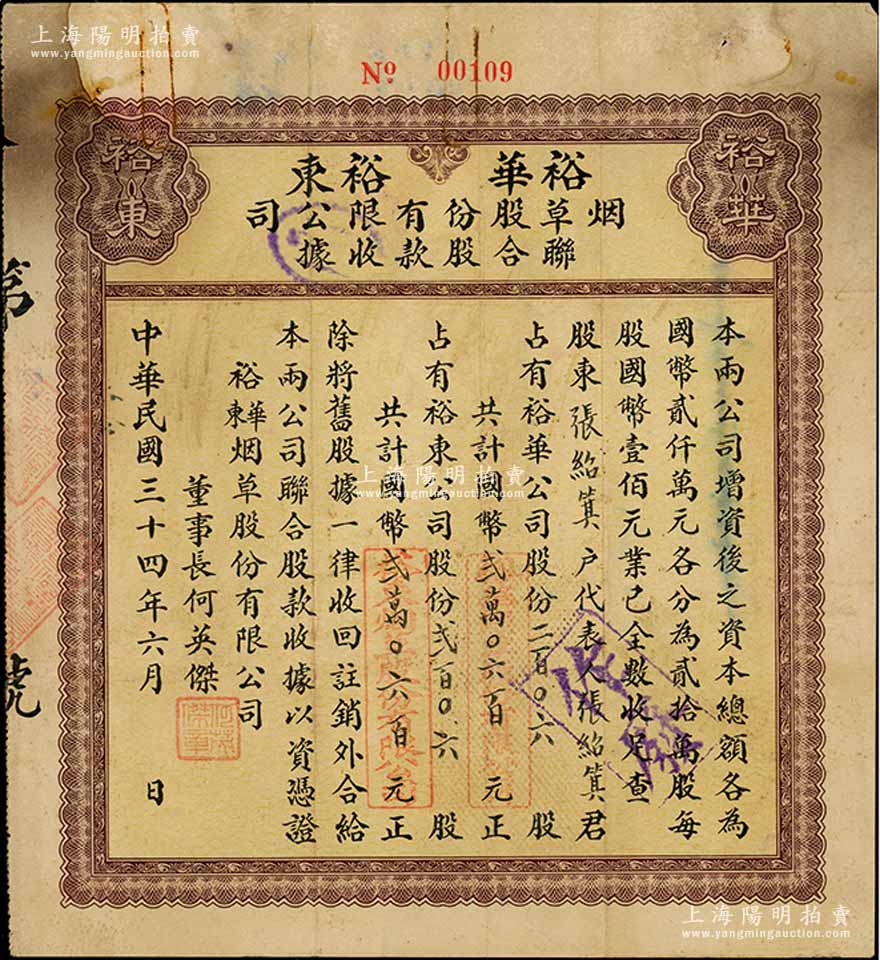 上海陽明拍賣
www.yangmingauction.com
上海陽明拍賣
www.yangmingauction.com
Nº 00109
裕華
裕東
裕華 裕東
烟草股份有限公司
聯合股款收據
本兩公司增資後之資本總額各為
國幣貳仟萬元各分為貳拾萬股每
股國幣壹佰元業已全數收足查
股東張紹箕户代表人張紹箕君
占有裕華公司股份二百0六股
共計國幣弍萬0六百元正
占有裕東公司股份弍百0六股
共計國幣弍萬0六百元正
除將舊股據一律收回註銷外合給
本兩公司聯合股款收據以資憑證
裕華東烟草股份有限公司
董事長何英傑
中華民國三十四年六月 日
第
號
上海陽明拍賣
www.yangmingauction.com
上海陽明拍賣
www.yangmingauction.com